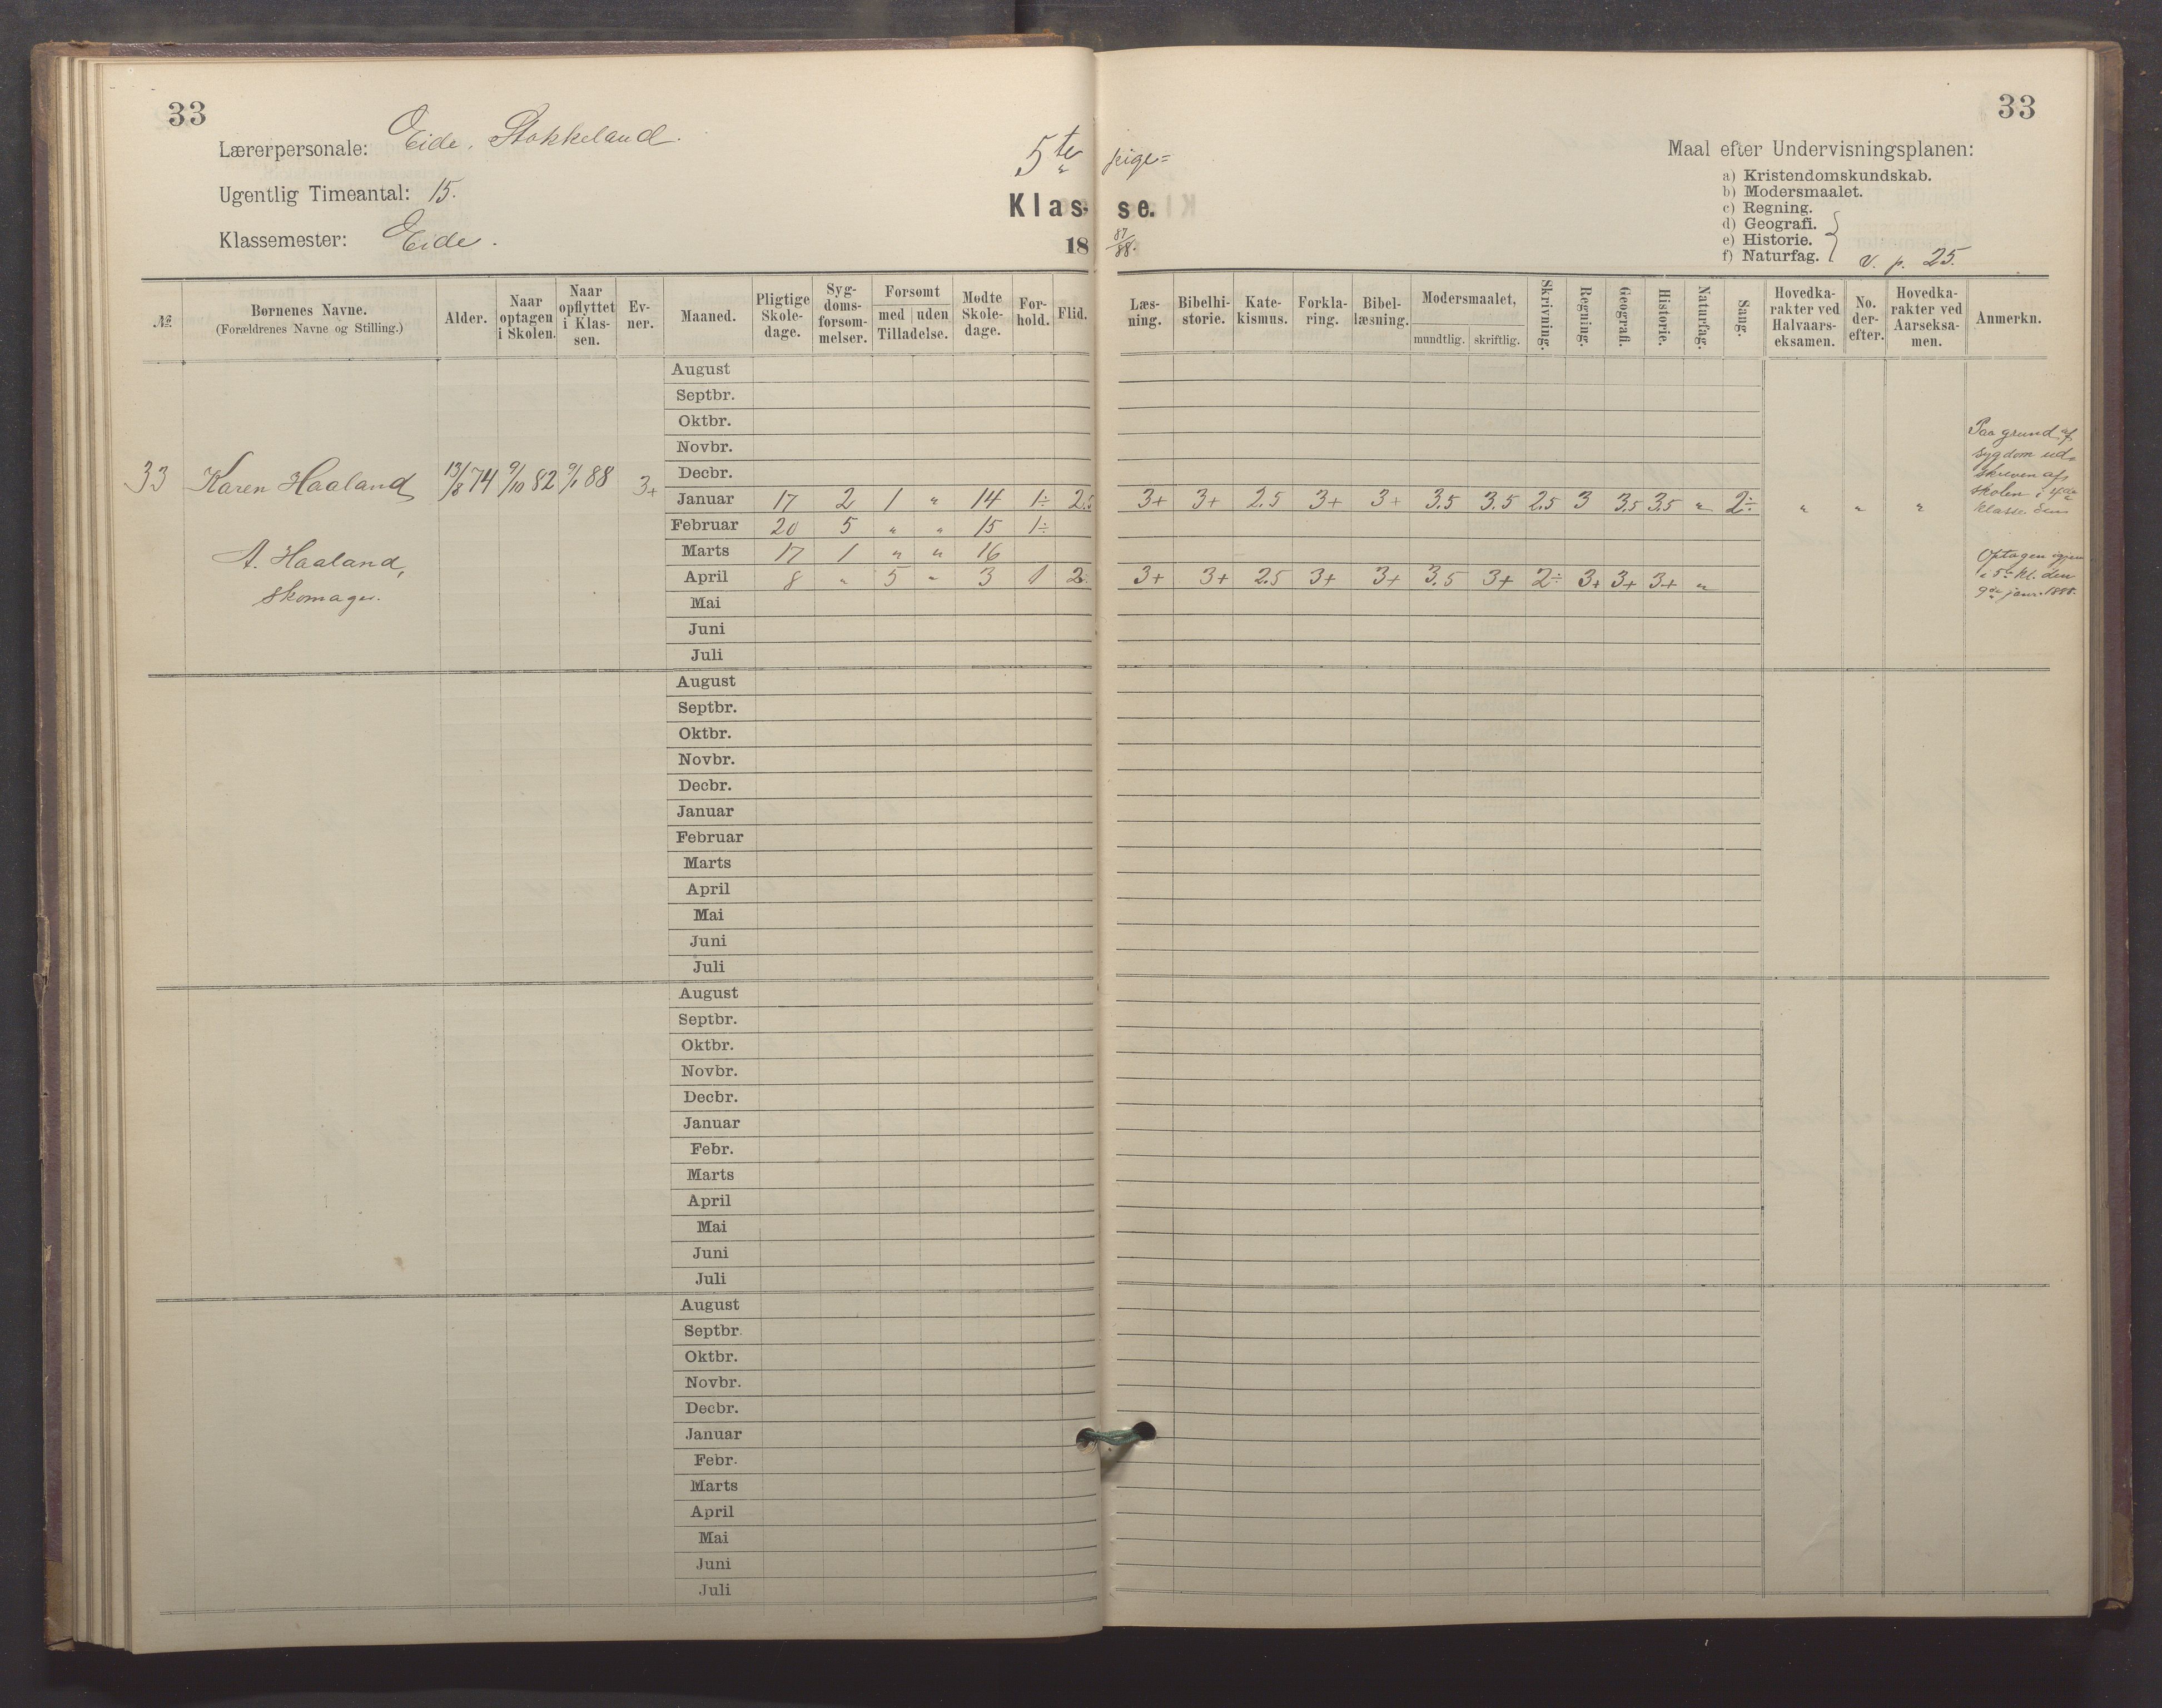 33
33
Lærerpersonale: Eide, Stokkeland.
Ugentlig Timeantal: 15.
Klassemester: Eide.
5te pige=
Klas- se.
18 87/88.
Maal efter Undervisningsplanen:
a) Kristendomskundskab.
b) Modersmaalet.
c) Regning.
d) Geografi.
e) Historie.
f) Naturfag. v. p. 25.
№ Børnenes Navne. (Forældrenes Navne og Stilling.) Alder. Naar optagen i Skolen. Naar opflyttet i Klassen. Evner. Maaned. Pligtige Skoledage. Sygdomsforsømmelser. Forsømt med uden Tilladelse. Mødte Skoledage. Forhold. Flid. Læsning. Bibelhistorie. Katekismus. Forklaring. Bibellæsning. Modersmaalet, mundtlig. skriftlig. Skrivning. Regning. Geografi. Historie. Naturfag. Sang. Hovedkarakter ved Halvaarseksamen. No. derefter. Hovedkarakter ved Aarseksamen. Anmerkn.
August
Septbr.
Oktbr.
Novbr.
Decbr.
33 Karen Haaland 13/8 74 9/10 82 9/1 88 3+
Januar 17 2 1 " 14 1÷ 2.5 3+ 3+ 2.5 3+ 3+ 3.5 3.5 2.5 3 3.5 3.5 " 2÷ " " "
Februar 20 5 " " 15 1÷
A. Haaland,
skomager.
Marts 17 1 " " 16
April 8 " 5 " 3 1 2 3+ 3+ 2.5 3+ 3+ 3.5 3+ 2÷ 3+ 3+ 3+ "
Mai
Juni
Juli
Paa grund af
sygdom ud=
skreven af
skolen i 4de
klasse den
Optagen igjen
i 5te kl. den
9de janr. 1888.
August
Septbr.
Oktbr.
Novbr.
Decbr.
Januar
Februar
Marts
April
Mai
Juni
Juli
August
Septbr.
Oktbr.
Novbr.
Decbr.
Januar
Febr.
Marts
April
Mai
Juni
Juli
August
Septbr.
Oktbr.
Novbr.
Decbr.
Januar
Febr.
Marts
April
Mai
Juni
Juli